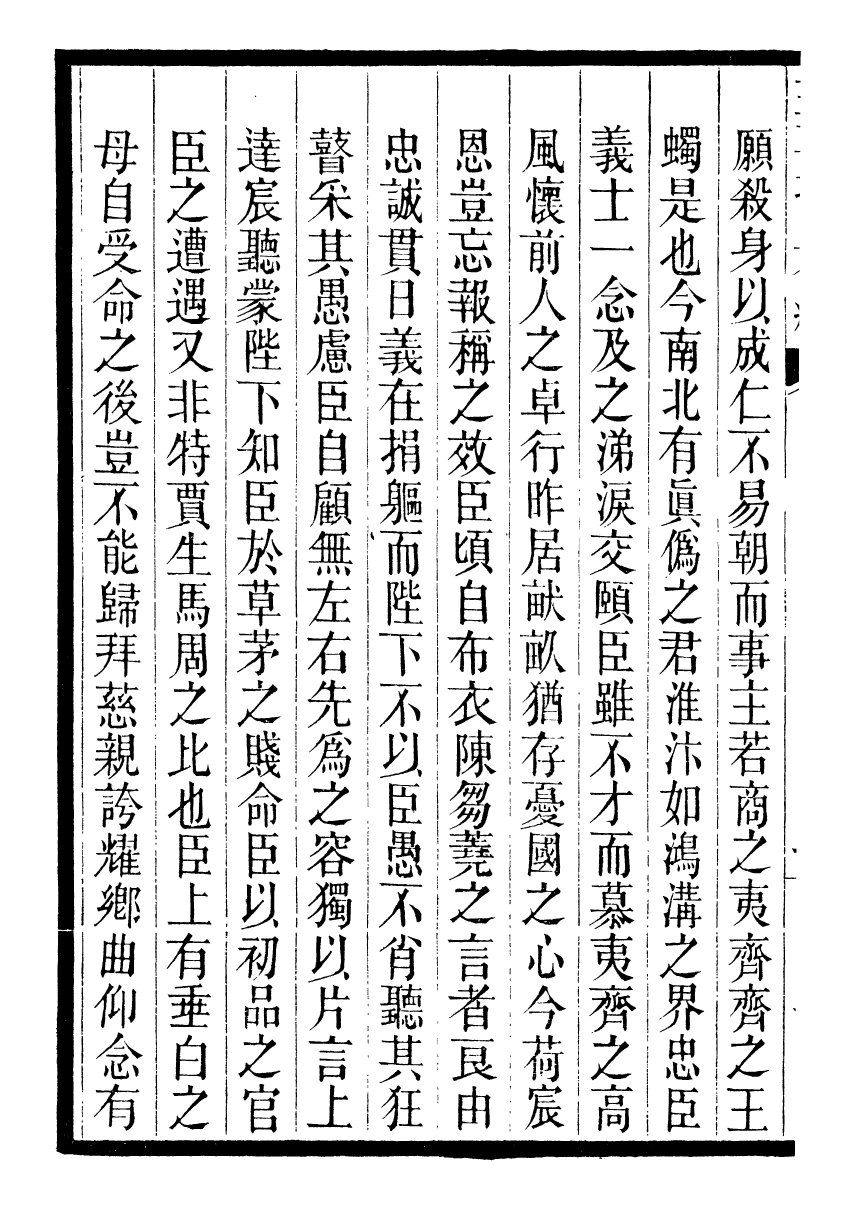 願殺身以成仁不易朝而事主若商之夷齊齊之王
蠋是也今南北有眞僞之君淮汴如鴻溝之界忠臣
義士一念及之涕淚交頤臣雖不才而慕夷齊之高
風懷前人之卓行昨居畎畝猶存憂國之心今荷宸
恩豈忘報稱之效臣頃自布衣陳芻蕘之言者良由
忠誠貫日義在捐軀而陛下不以臣愚不肖聽其狂
瞽采其愚慮臣自顧無左右先爲之容獨以片言上
達宸聽蒙陛下知臣於草茅之賤命臣以初品之官
臣之遭遇又非特賈生馬周之比也臣上有垂白之
母自受命之後豈不能歸拜慈親誇耀鄉曲仰念有